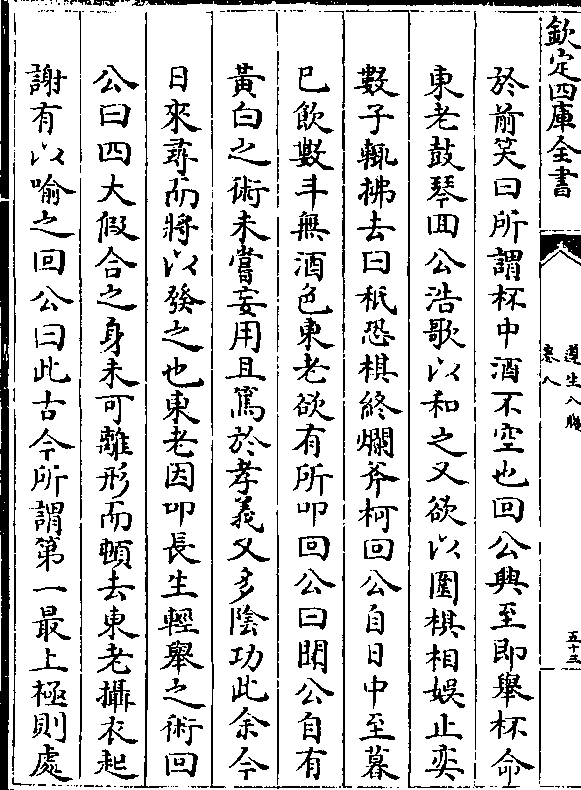 欽定四庫全書
遵生八牋
卷八
五十三
於前笑曰所謂杯中酒不空也回公興至即舉杯命
東老鼓琴回公浩歌以和之又欲以圍棋相娛止奕
數子輒拂去曰秖恐棋終爛斧柯回公自日中至暮
已飲數斗無酒色東老欲有所叩回公曰聞公自有
黄白之術未嘗妄用且篤於孝義又多隂功此余今
日來尋而將以發之也東老因叩長生輕舉之術回
公曰四大假合之身未可離形而頓去東老攝衣起
謝有以喻之回公曰此古今所謂第一最上極則處